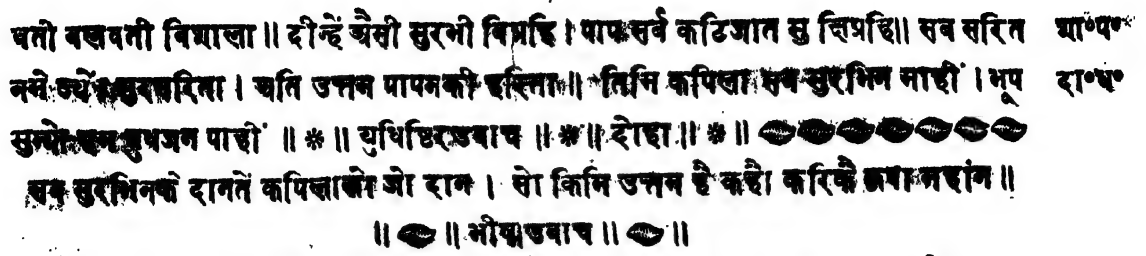 धती बलवती बिशाला ॥ दीन्हें ऐसी सुरभी बिप्रहि । पाप सर्व कटिजात सु क्षिप्रहि ॥ सब सरित शा॰प॰
नमें ज्यों सुरसरिता । अति उत्तम पापनकी हरिता ॥ तिमि कपिला सब सुरभिन माहीं । भूप दा॰ध॰
सुन्यो हम बुधजन पाहीं ॥ * ॥ युधिष्ठिरउवाच ॥ * ॥ दोहा ॥ * ॥
सब सुरभिनके दानतें कपिलाको जो दान । सो किमि उत्तम है कहौ करिकै कृपा महांन ॥
॥ भीष्मउवाच ॥ ॥